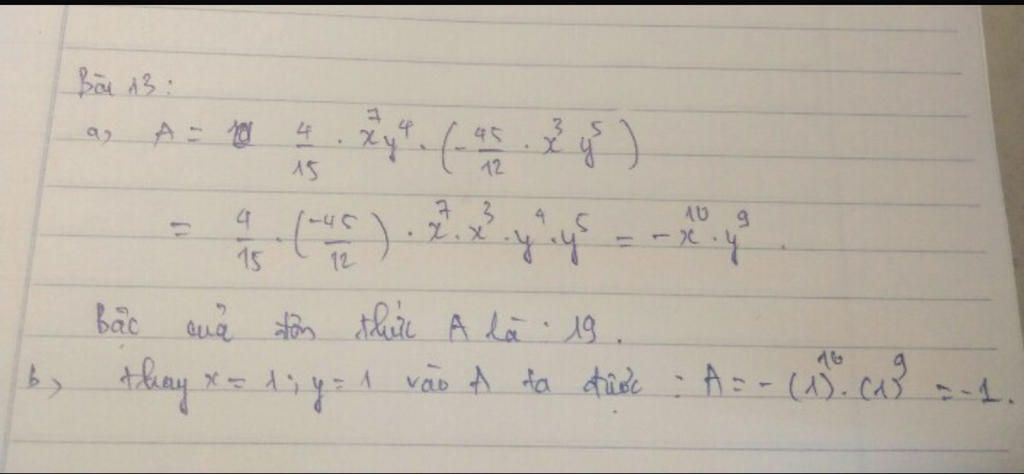 Bài 13:
a, A = 4/15 . x⁷y⁴ . (-45/12 . x³y⁵)
= 4/15 . (-45/12) . x⁷ . x³ . y⁴ . y⁵ = -x¹⁰ . y⁹.
Bậc của đơn thức A là : 19.
b, thay x = 1 ; y = 1 vào A ta được : A = -(1)¹⁰ . (1)⁹ = -1.